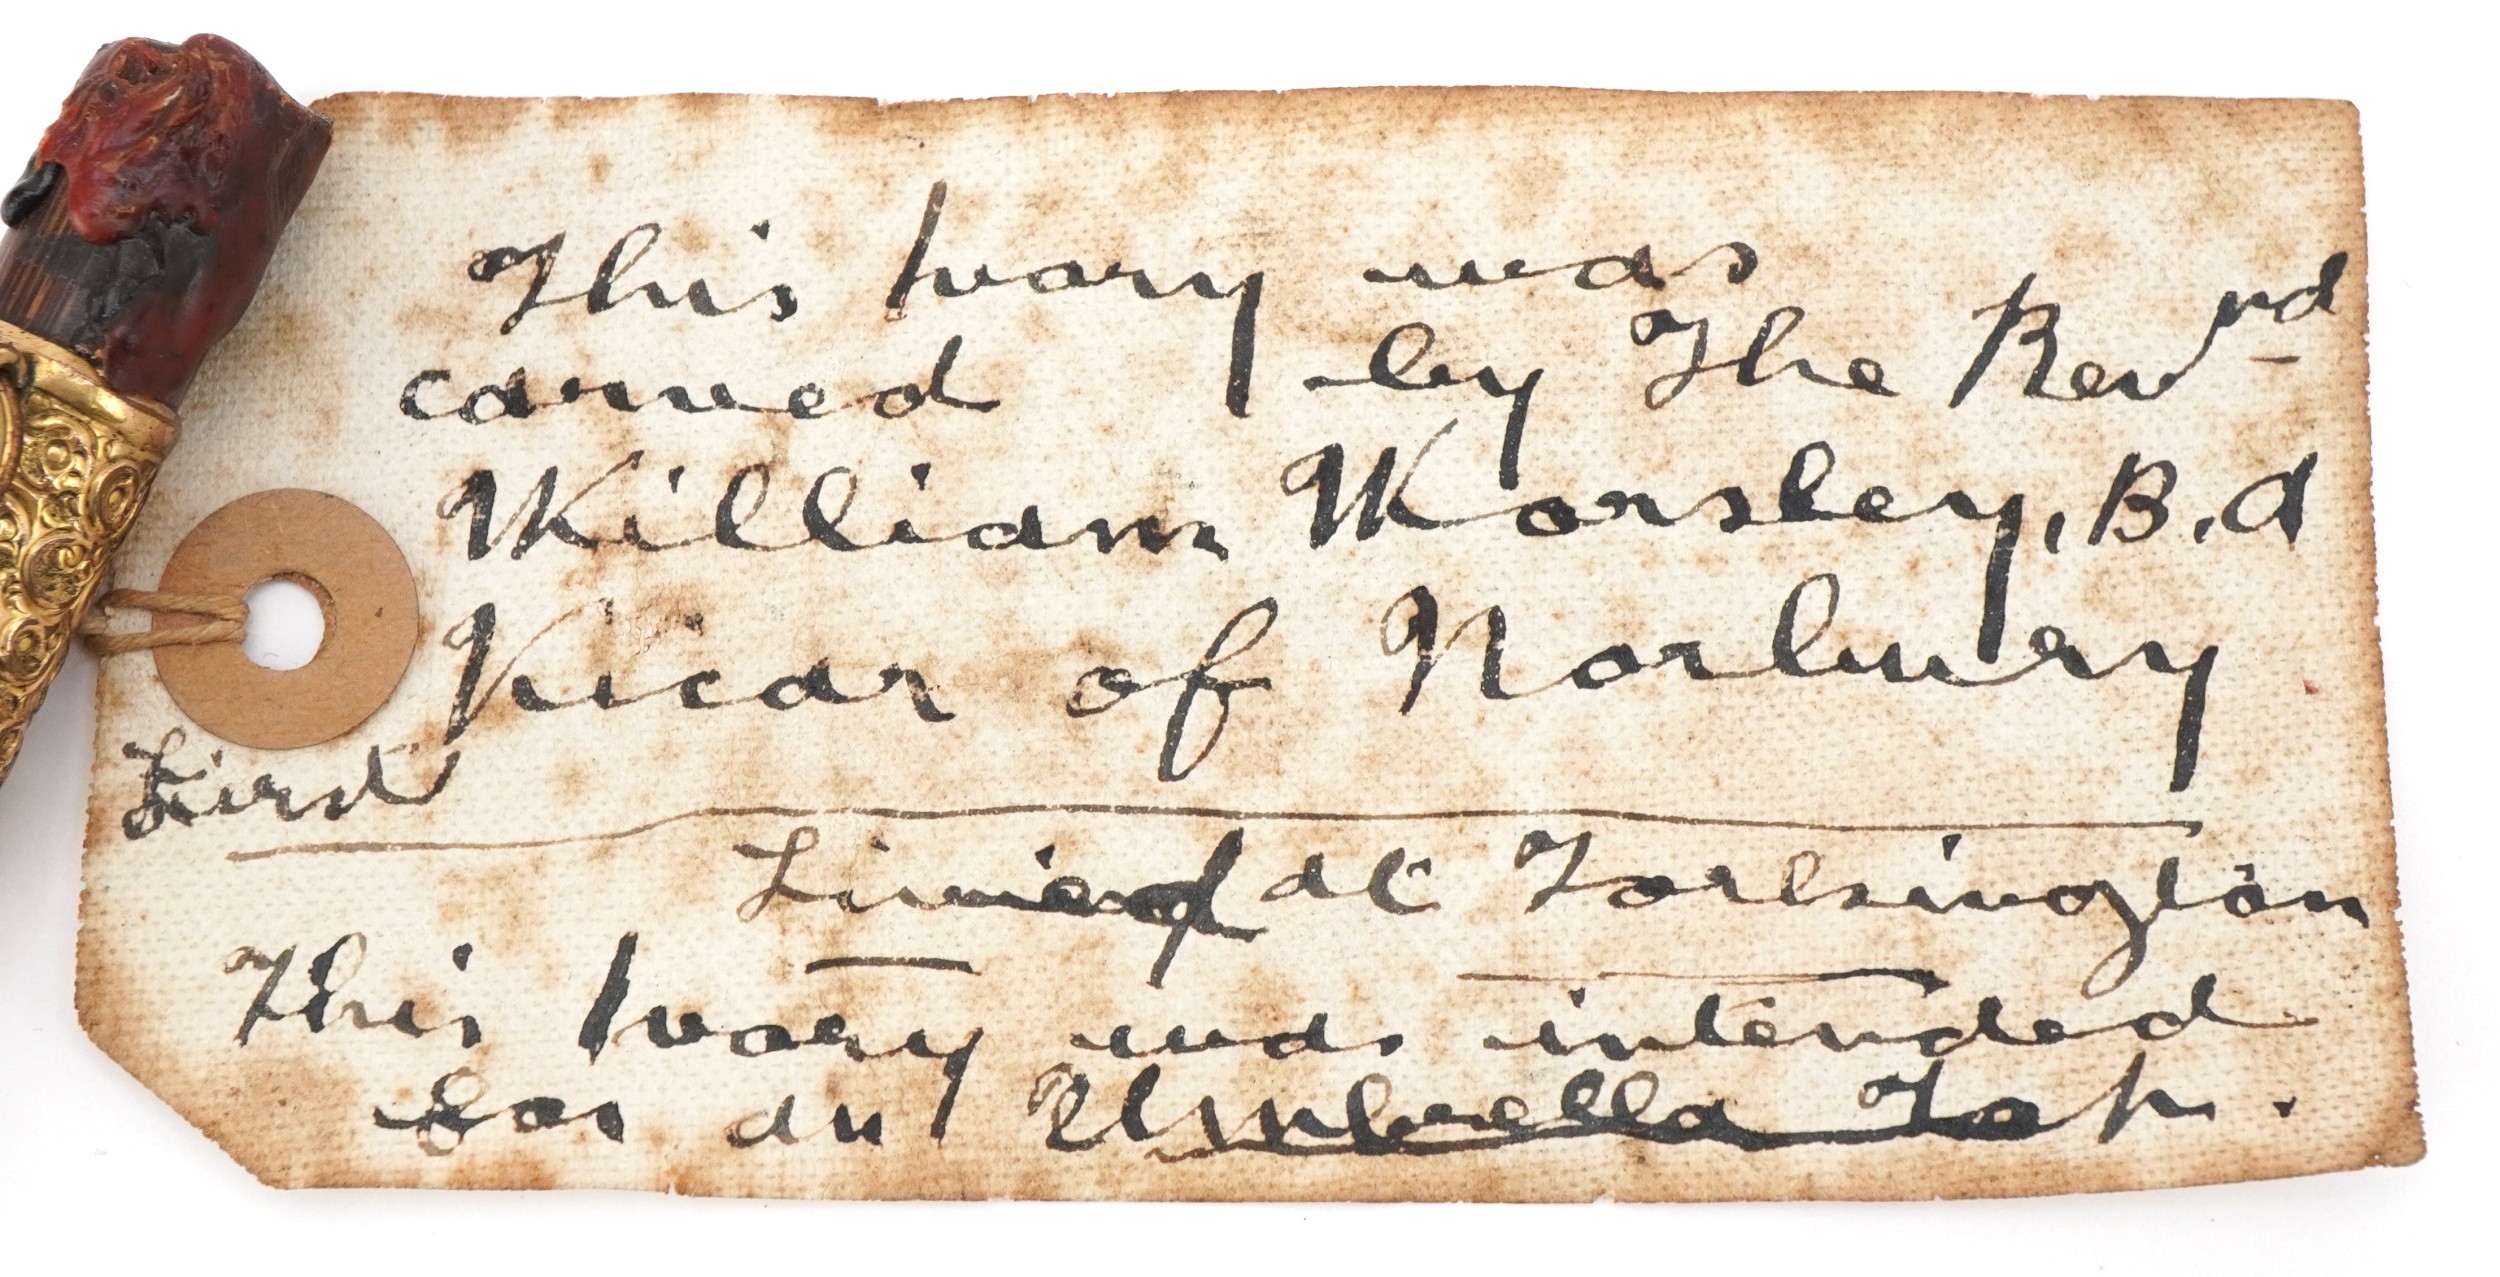 This Ivory was
carved by The Revrd
William Worsley, B.A
Vicar of Norbury
First
Lived at Torkington
This Ivory was intended
for an Umbrella Top.